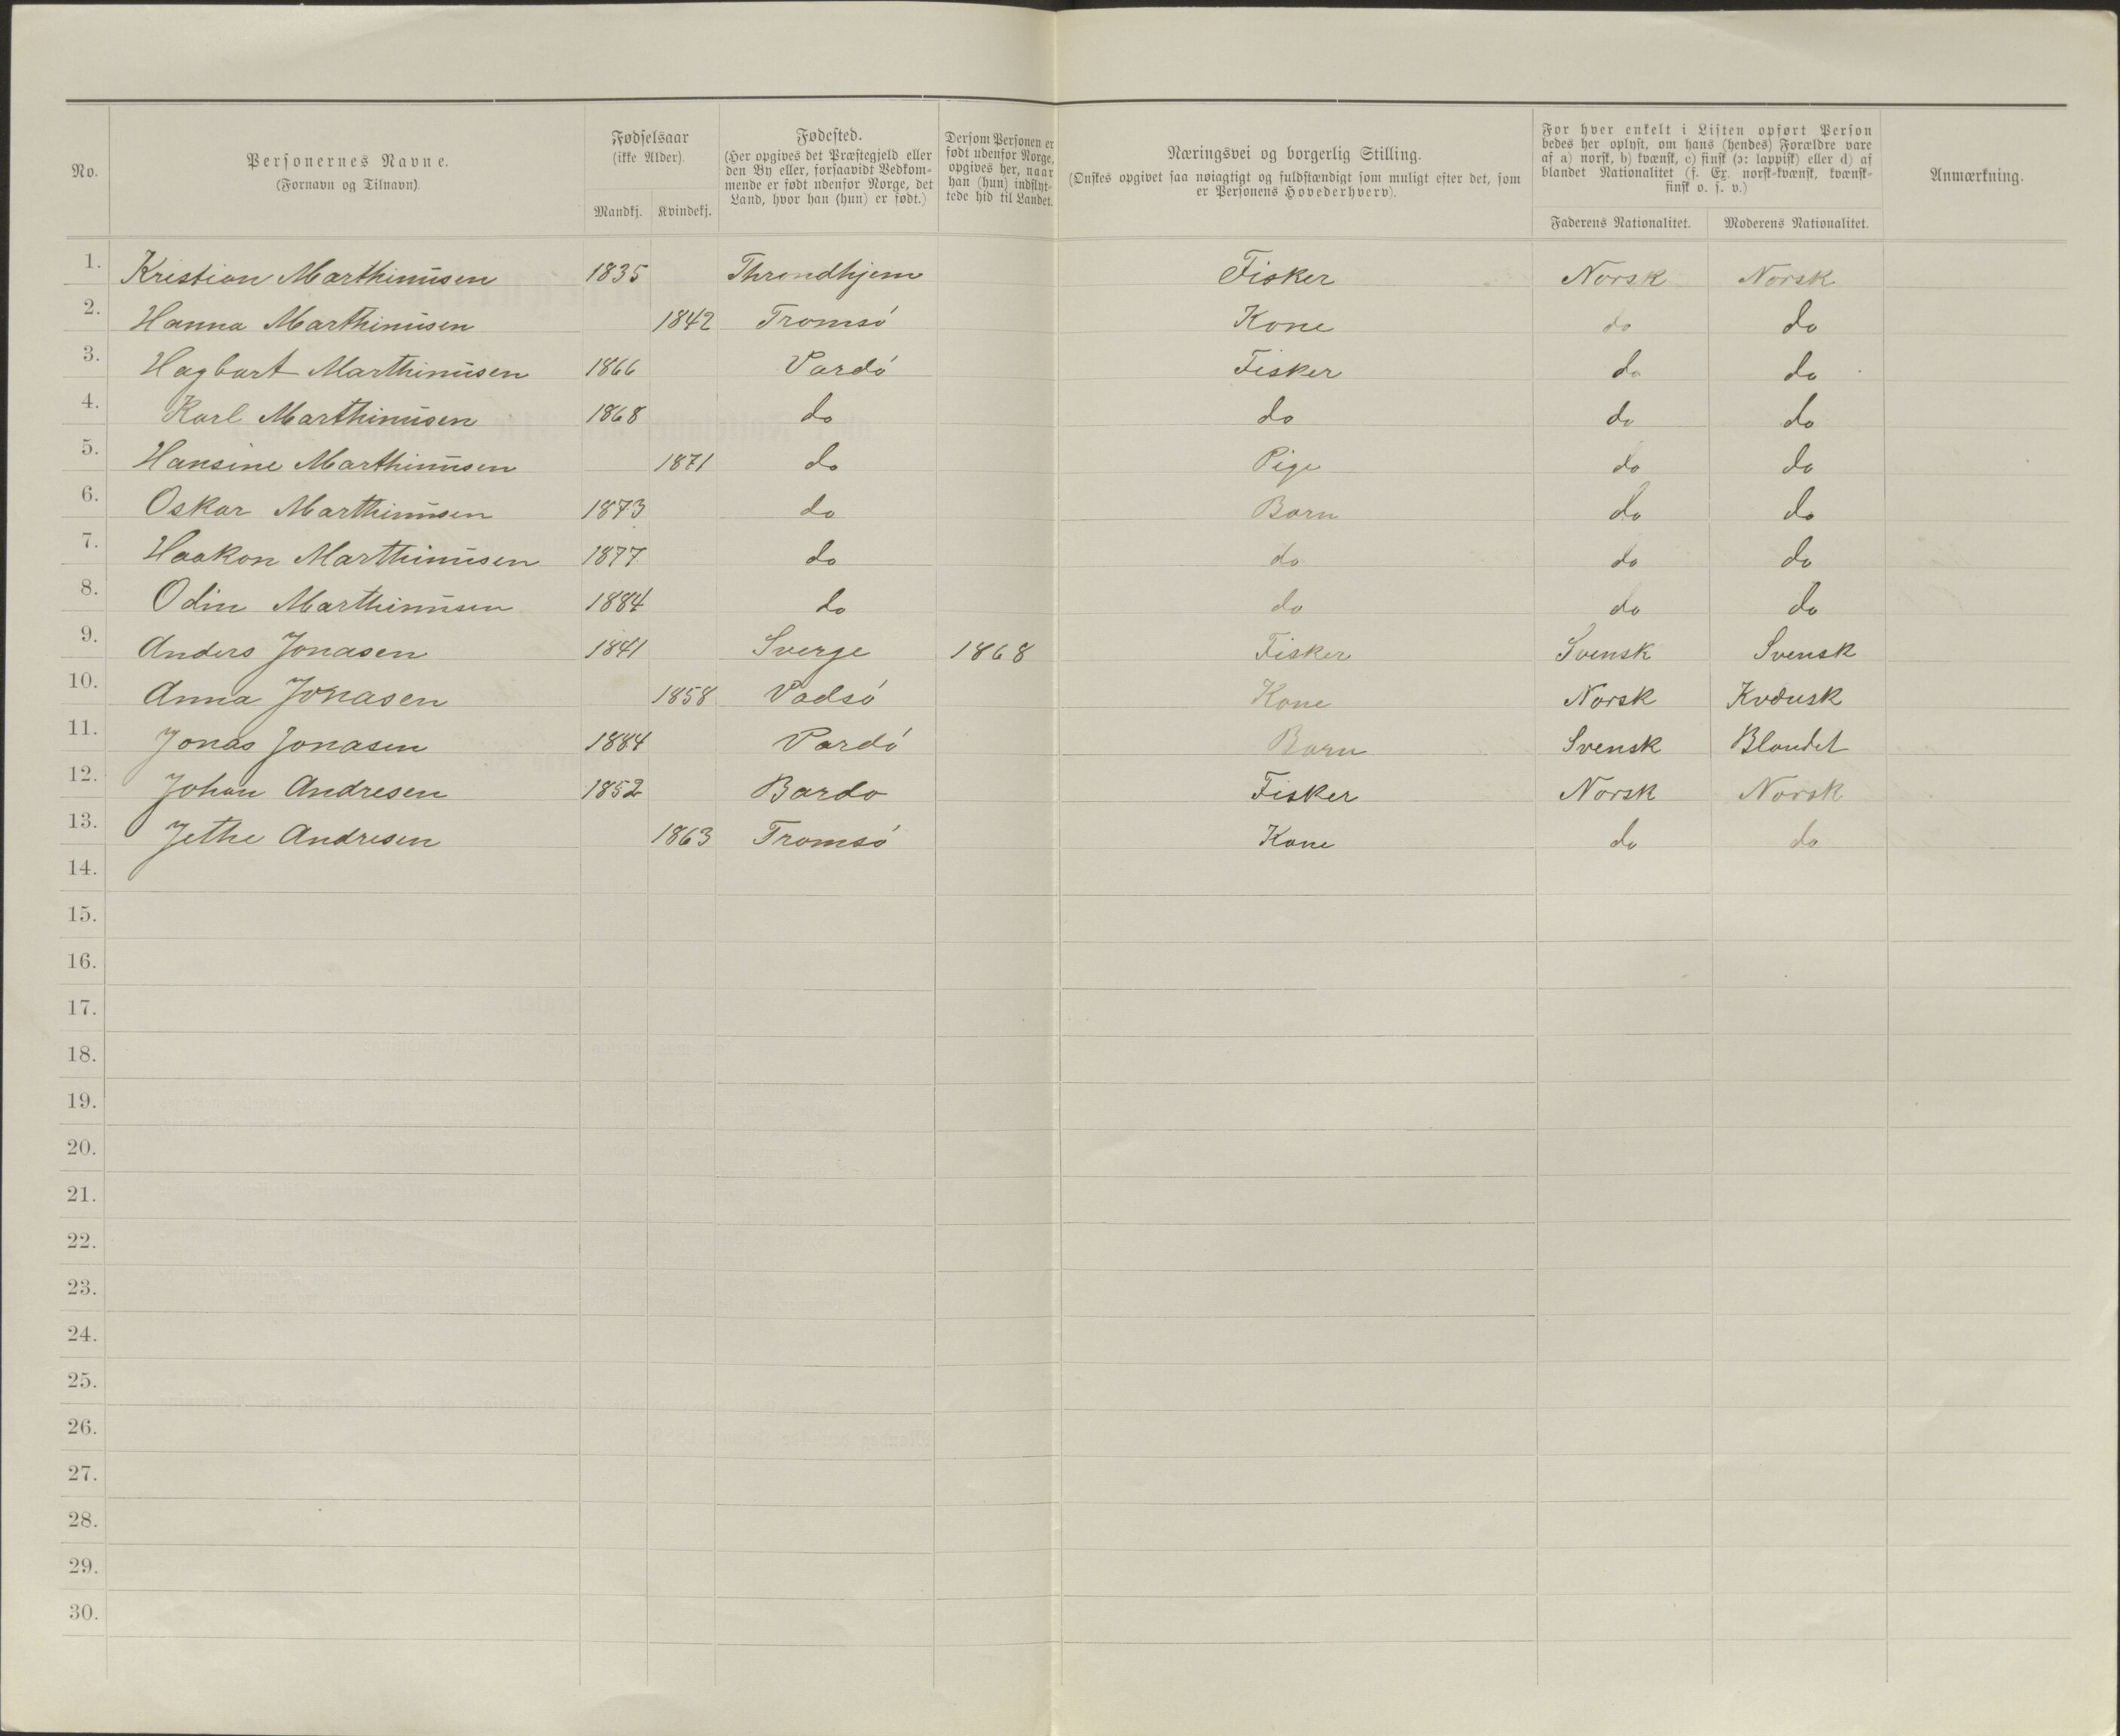 No.
Personernes Navne.
(Fornavn og Tilnavn).
Fødselsaar
(ikke Alder).
Mandkj. Kvindekj.
Fødested.
(Her opgives det Præstegjeld eller
den By eller, forsaavidt Vedkom-
mende er født udenfor Norge, det
Land, hvor han (hun) er født.)
Dersom Personen er
født udenfor Norge,
opgives her, naar
han (hun) indflyt-
tede hid til Landet.
Næringsvei og borgerlig Stilling.
(Ønskes opgivet saa nøiagtigt og fuldstændigt som muligt efter det, som
er Personens Hovederhverv).
For hver enkelt i Listen opført Person
bedes her oplyst, om hans (hendes) Forældre vare
af a) norsk, b) kvænsk, c) finsk (ɔ: lappisk) eller d) af
blandet Nationalitet (f. Ex. norsk-kvænsk, kvænsk-
finsk o. s. v.)
Faderens Nationalitet. Moderens Nationalitet.
Anmærkning.
1. Kristian Marthinusen 1835 Throndhjem Fisker Norsk Norsk
2. Hanna Marthinusen 1842 Tromsö Kone do do
3. Hagbart Marthinusen 1866 Vardö Fisker do do
4. Karl Marthinusen 1868 do do do do
5. Hansine Marthinusen 1871 do Pige do do
6. Oskar Marthinusen 1873 do Barn do do
7. Haakon Marthinusen 1877 do do do do
8. Odin Marthinusen 1884 do do do do
9. Anders Jonasen 1841 Sverge 1868 Fisker Svensk Svensk
10. Anna Jonasen 1858 Vadsö Kone Norsk Kvænsk
11. Jonas Jonasen 1884 Vardö Barn Svensk Blandet
12. Johan Andresen 1852 Bardo Fisker Norsk Norsk
13. Jethe Andresen 1863 Tromsö Kone do do
14.
15.
16.
17.
18.
19.
20.
21.
22.
23.
24.
25.
26.
27.
28.
29.
30.